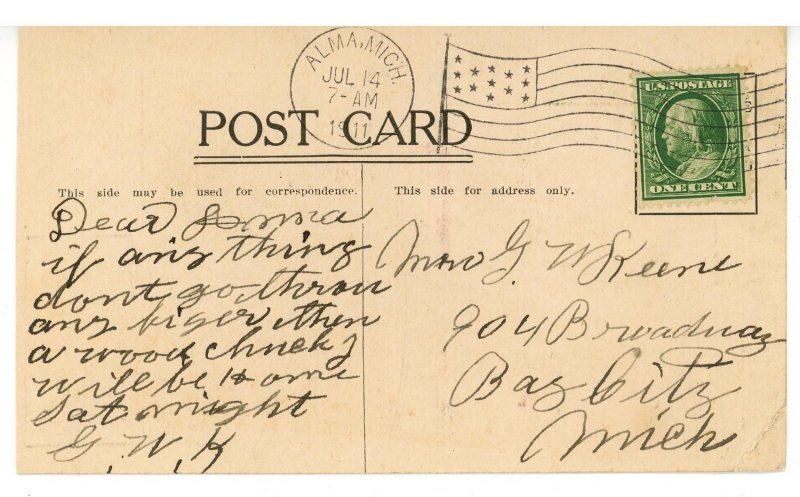 ALMA, MICH.
JUL 14
7-AM
1911
U.S. POSTAGE
ONE CENT
POST CARD
This side may be used for correspondence.
This side for address only.
Dear
if any thing
dont go throu
any biger then
a wood chuck I
will be home
Sat night
G. W. K
Mrs G. W Keene
904 Broadway
Bay City
Mich